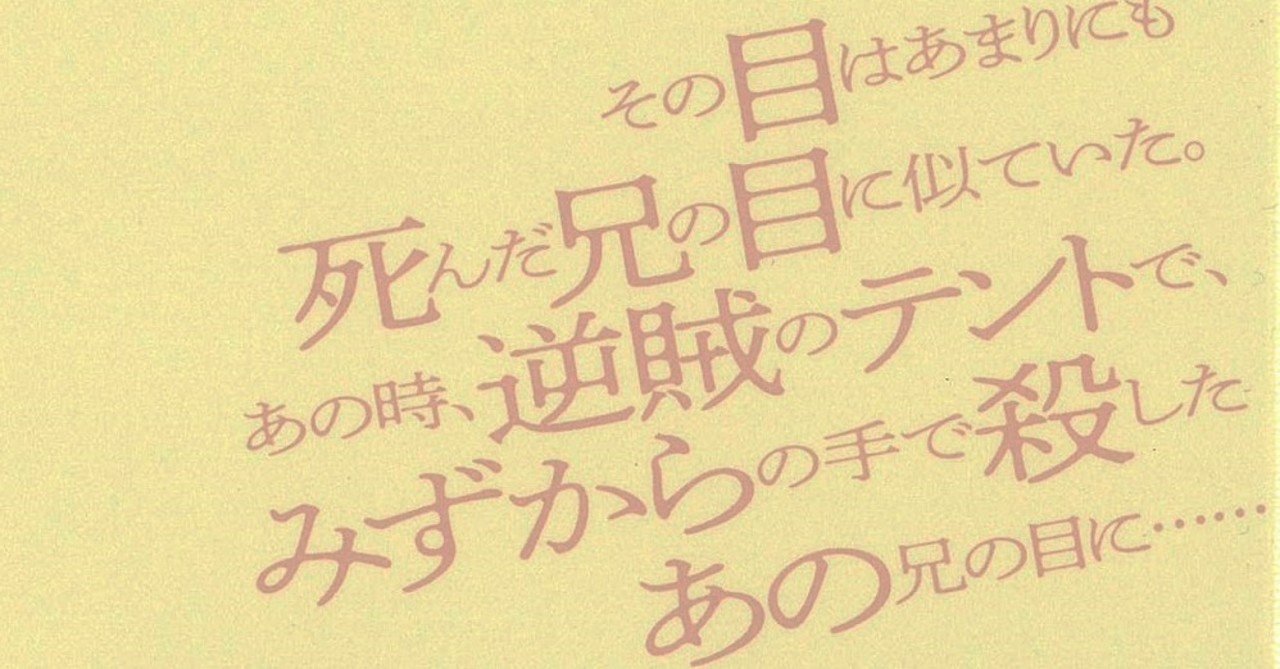 その目はあまりにも
死んだ兄の目に似ていた。
あの時、逆賊のテントで、
みずからの手で殺した
あの兄の目に……